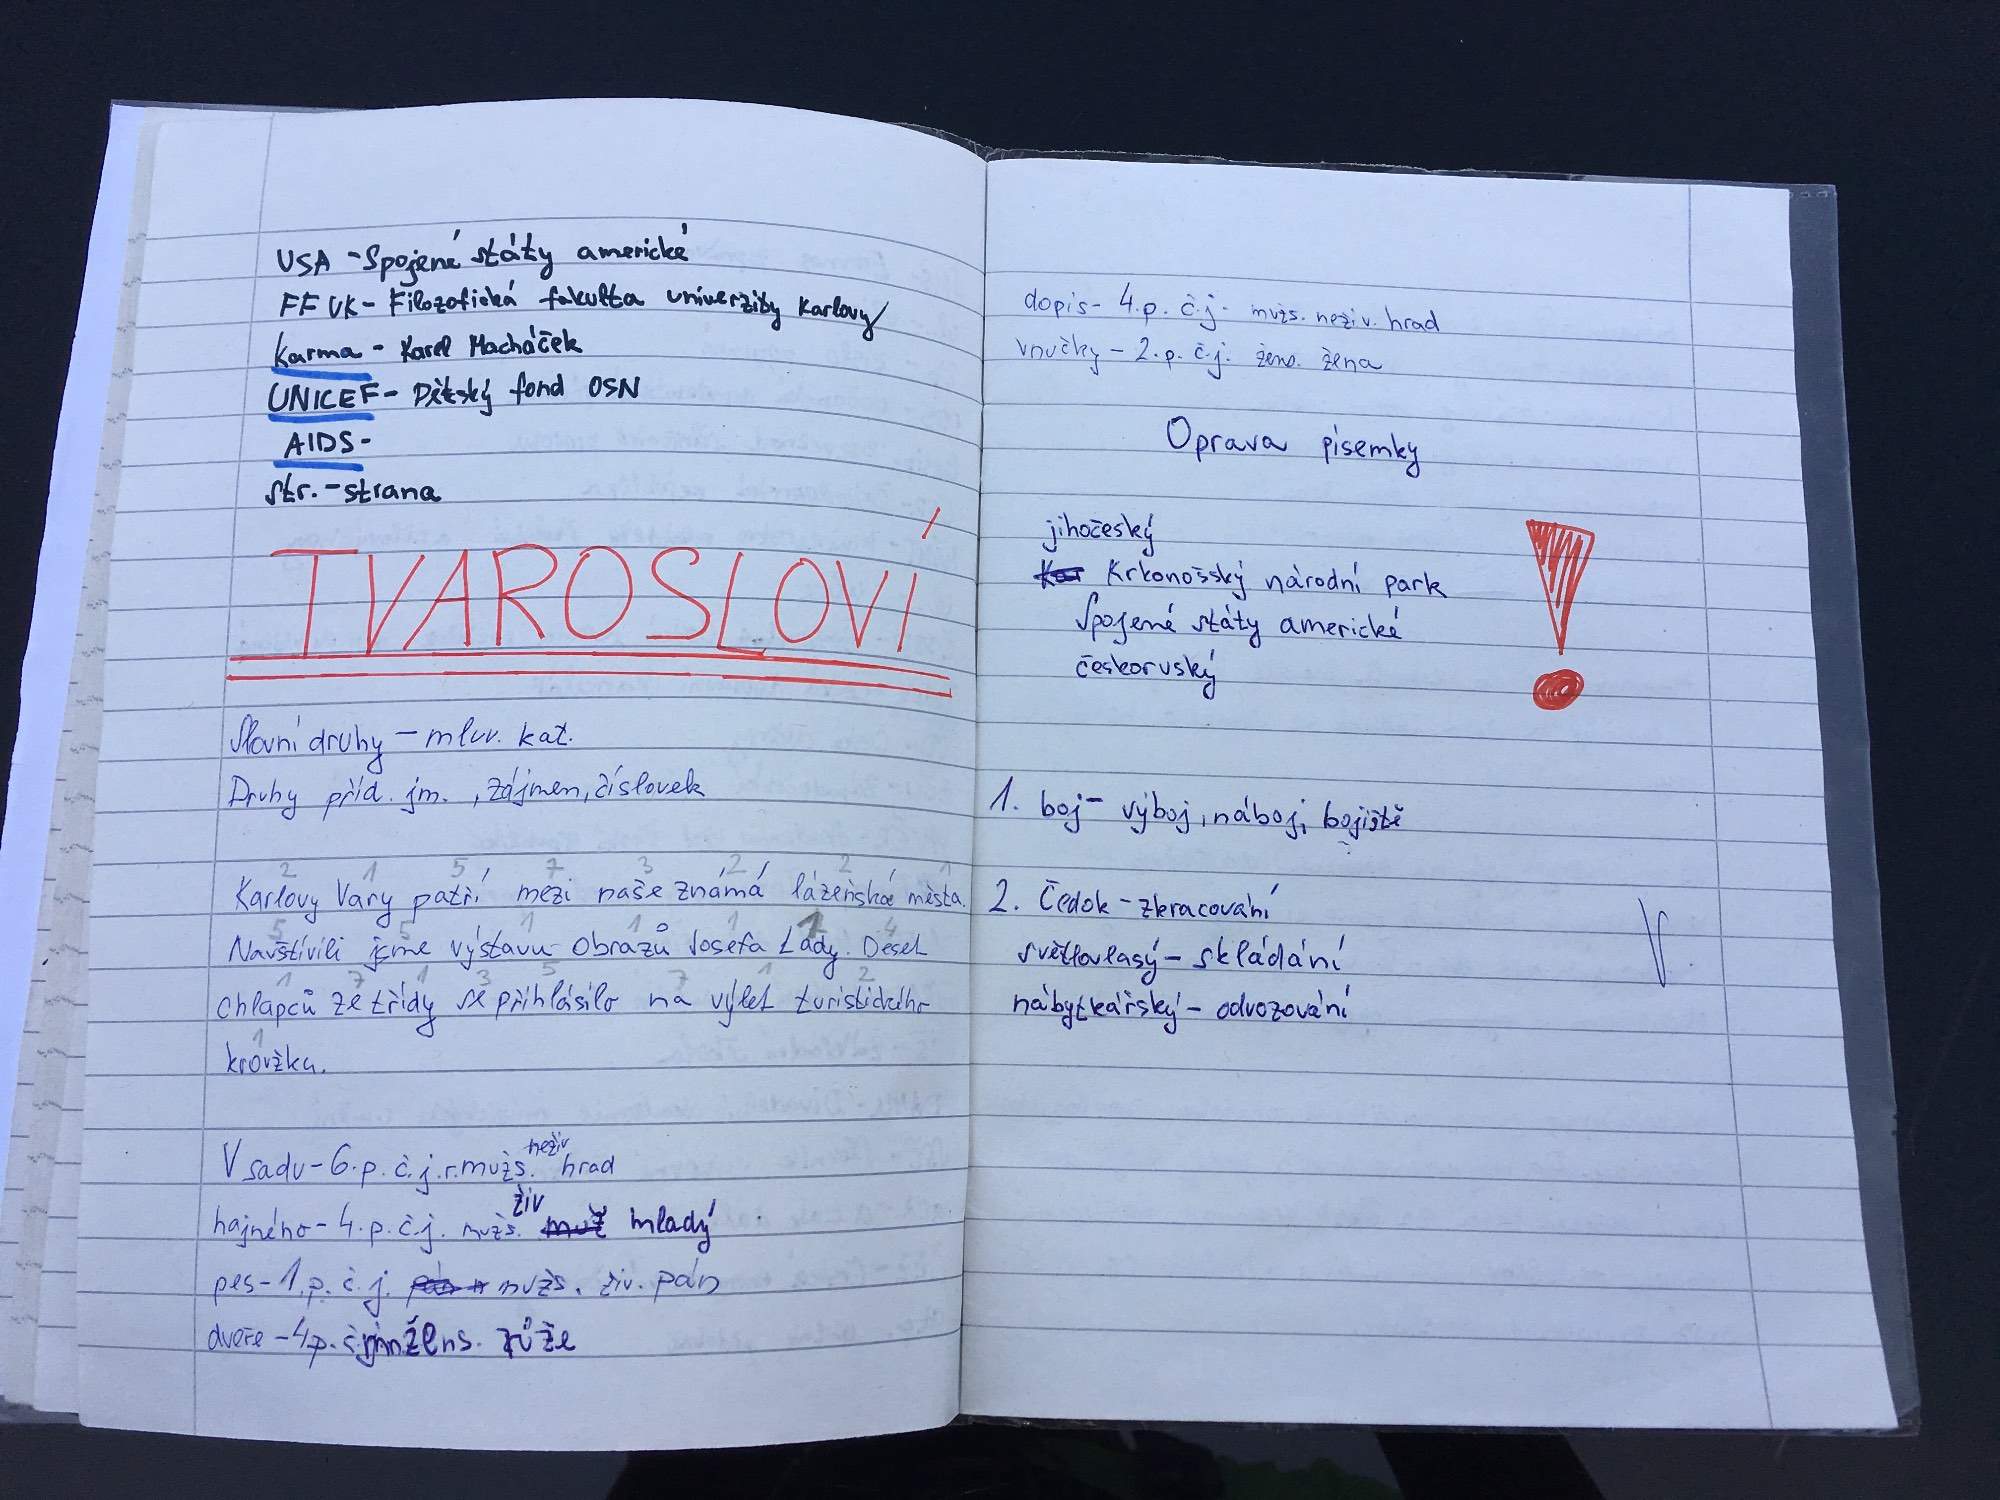 USA - Spojené státy americké
FF UK - Filozofická fakulta univerzity Karlovy
Karma - Karel Macháček
UNICEF - Dětský fond OSN
AIDS -
str. - strana
TVAROSLOVÍ
Slovní druhy - mluv. kat.
Druhy příd. jm., zájmen, číslovek
2 1 5 7 3 2 2 1
Karlovy Vary patří mezi naše známá lázeňská města.
5 5 1 1 1 1 4
Navštívili jsme výstavu obrazů Josefa Lady. Deset
1 7 1 3 5 7 1 2
chlapců ze třídy se přihlásilo na výlet turistického
1
kroužku.
V sadu - 6. p. č. j. r. mužs. neživ hrad
hajného - 4. p. č. j. mužs. živ muž mladý
pes - 1. p. č. j. mužs. živ. pán
dveře - 4. p. č. žens. růže
dopis - 4. p. č. j. mužs. neživ. hrad
vnučky - 2. p. č. j. žens. žena
Oprava písemky
jihočeský
Krkonošský národní park
Spojené státy americké
českoruský
!
1. boj - výboj, náboj, bojiště
2. Čedok - zkracování
světlovlasý - skládání
nábytkářský - odvozování